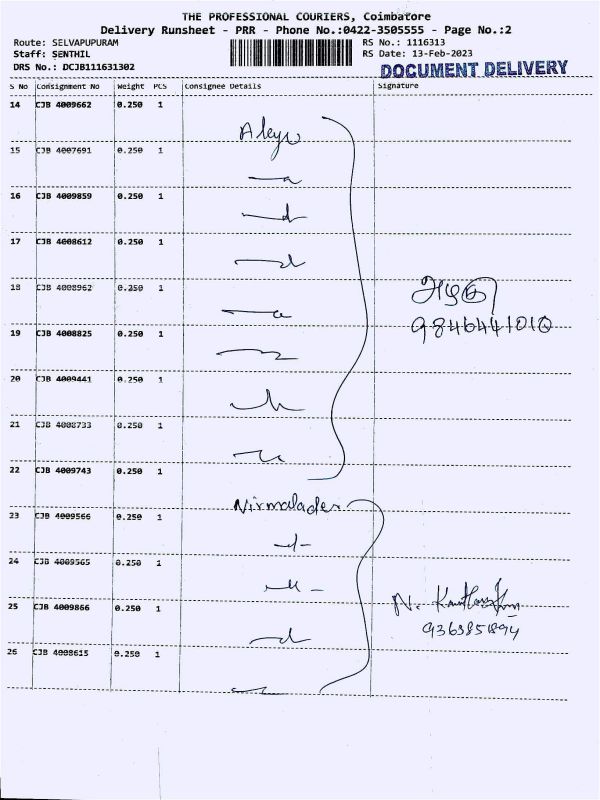 THE PROFESSIONAL COURIERS, Coimbatore
Delivery Runsheet - PRR - Phone No.:0422-3505555 - Page No.:2
Route: SELVAPUPURAM
RS No.: 1116313
Staff: SENTHIL
RS Date: 13-Feb-2023
DRS No.: DCJB111631302
DOCUMENT DELIVERY
S No Consignment No Weight PCS Consignee Details Signature
14 CJB 4009662 0.250 1
15 CJB 4007691 0.250 1
16 CJB 4009859 0.250 1
17 CJB 4008612 0.250 1
18 CJB 4008962 0.250 1
9846441010
19 CJB 4008825 0.250 1
20 CJB 4009441 0.250 1
21 CJB 4008733 0.250 1
22 CJB 4009743 0.250 1
Nirmaladevi
23 CJB 4009566 0.250 1
24 CJB 4009565 0.250 1
N.
25 CJB 4009866 0.250 1
26 CJB 4008615 0.250 1